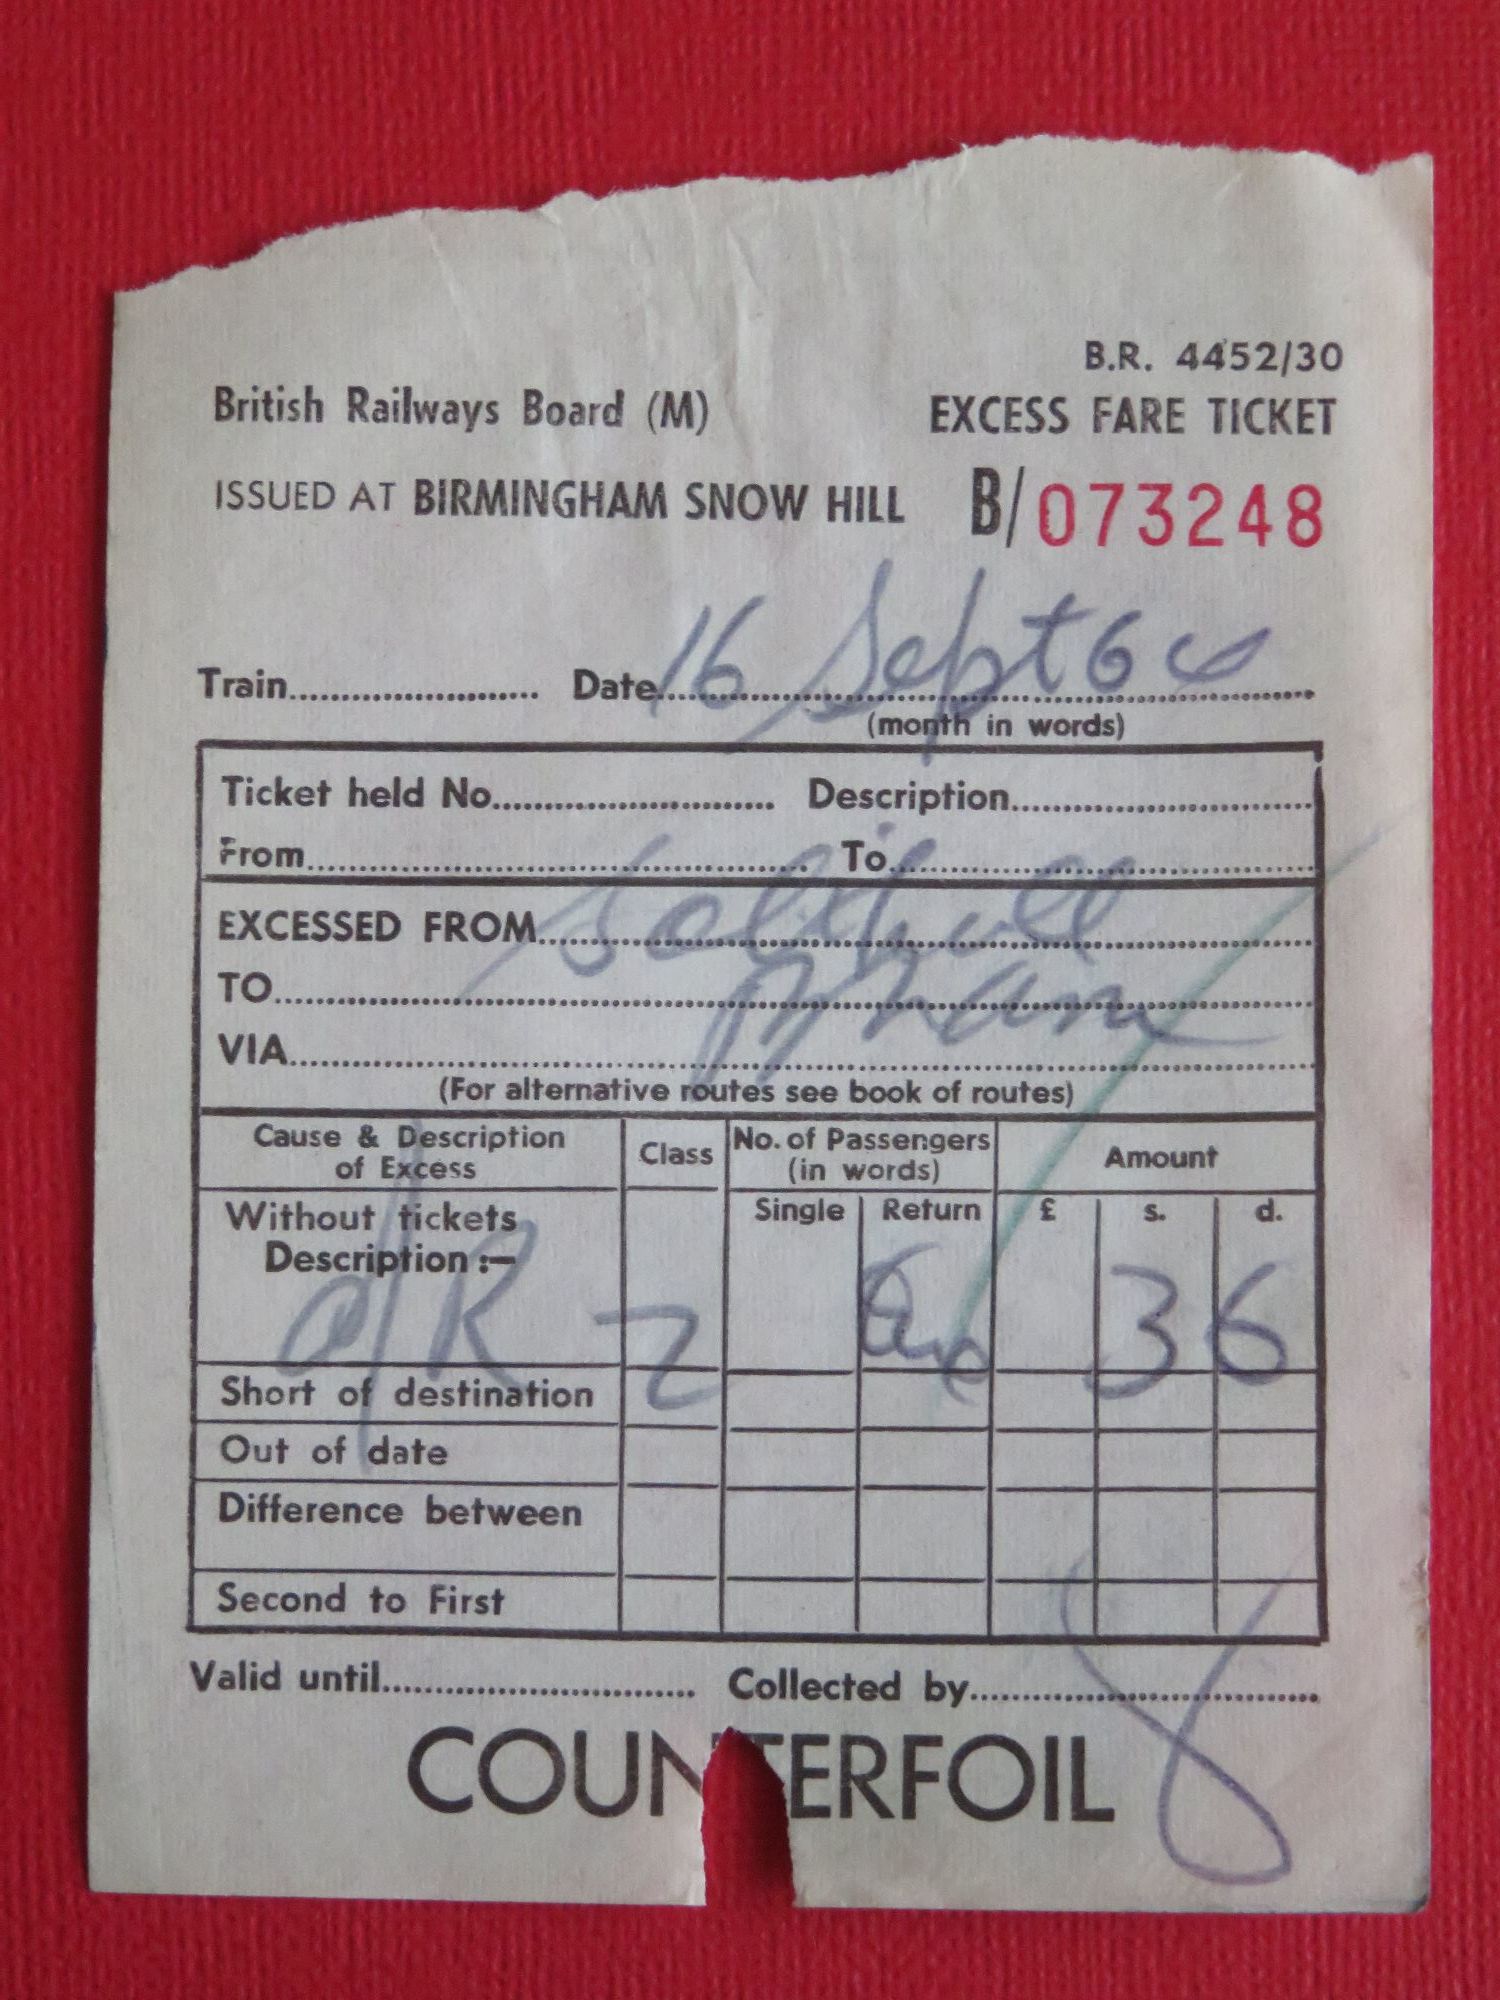 B.R. 4452/30
British Railways Board (M) EXCESS FARE TICKET
ISSUED AT BIRMINGHAM SNOW HILL B/073248
Train Date 16 Sept 6
(month in words)
Ticket held No. Description
From To
EXCESSED FROM Solihull
TO B'ham
VIA
(For alternative routes see book of routes)
Cause & Description of Excess Class No. of Passengers (in words) Amount
Single Return £ s. d.
Without tickets
Description :-
/R 2 3 6
Short of destination
Out of date
Difference between
Second to First
Valid until Collected by
COUNTERFOIL